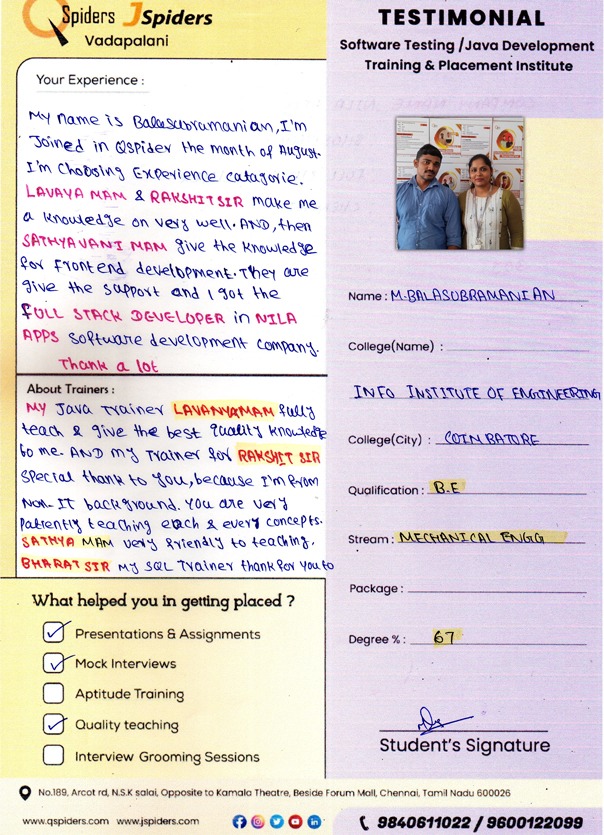 QSpiders JSpiders
Vadapalani
Your Experience :
My name is Balasubramanian, I'm
Joined in QSpider the month of August.
I'm Choosing Experience catagorie.
LAVAYA MAM & RAKSHIT SIR make me
a Knowledge on very well. AND, then
SATHYAVANI MAM give the Knowledge
for Front end development. They are
give the support and I got the
FULL STACK DEVELOPER in NILA
APPS Software development company.
Thank a lot
About Trainers :
My Java Trainer LAVANYA MAM fully
teach & give the best quality Knowledge
to me. AND my Trainer for RAKSHIT SIR
Special thank to You, because I'm from
Non-IT background. You are very
Patiently teaching each & every concepts.
SATHYA MAM very friendly to teaching.
BHARAT SIR my SQL Trainer thank for you to
What helped you in getting placed ?
Presentations & Assignments
Mock Interviews
Aptitude Training
Quality teaching
Interview Grooming Sessions
TESTIMONIAL
Software Testing /Java Development
Training & Placement Institute
Name : M.BALASUBRAMANIAN
College(Name) :
INFO INSTITUTE OF ENGINEERING
College(City) : COIMBATORE
Qualification : B.E
Stream : MECHANICAL ENGG
Package :
Degree % : 67
Student's Signature
No.189, Arcot rd, N.S.K salai, Opposite to Kamala Theatre, Beside Forum Mall, Chennai, Tamil Nadu 600026
www.qspiders.com www.jspiders.com
9840611022 / 9600122099